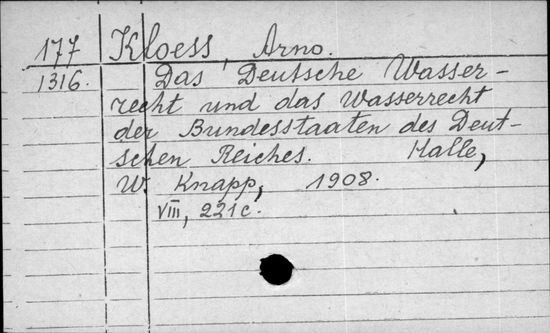 177 Kloess, Arno.
1316. Das Deutsche Wasser-
recht und das Wasserrecht
der Bundesstaaten des Deut-
schen Reiches. Halle,
W. Knapp, 1908.
VIII, 221 c.